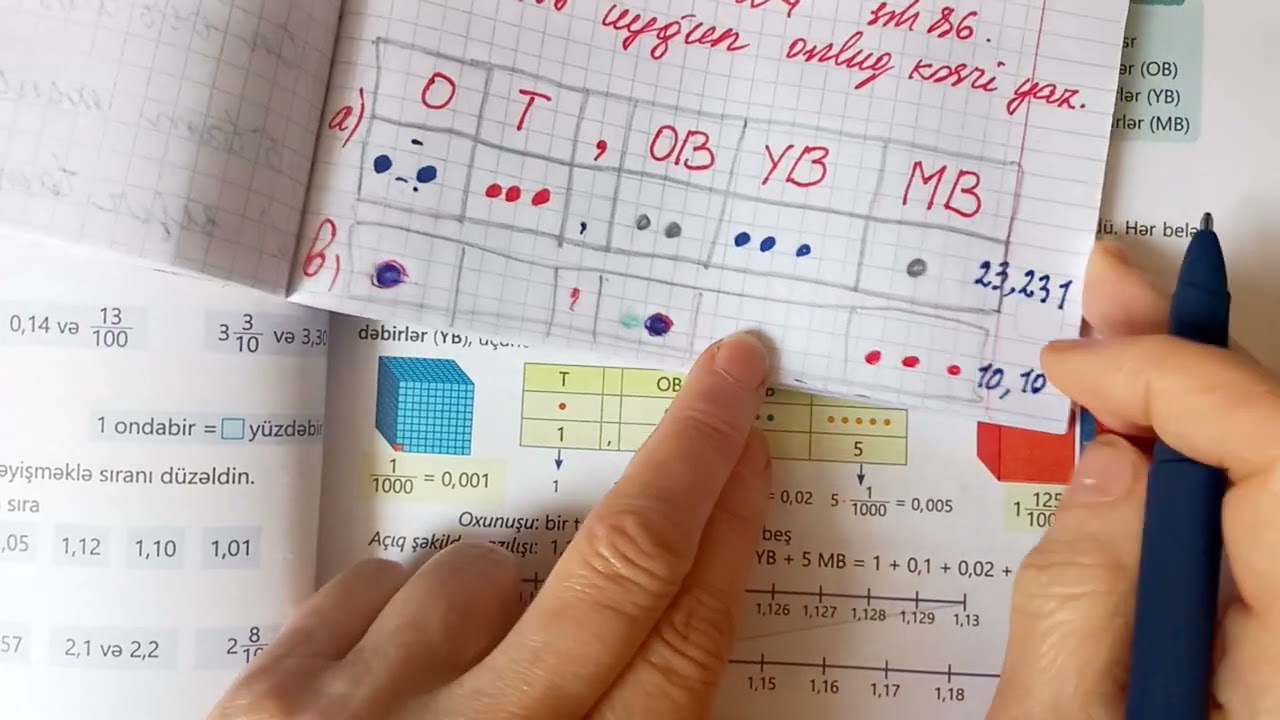 səh 86.
uyğun onluq kəsri yaz.
a) O T , OB YB MB
, 23,231
b) , 10,10
(OB)
(YB)
(MB)
Hər
0,14 və 13/100
3 3/10 və 3,30
1 ondabir = □ yüzdəbir
sıranı düzəldin.
sıra
,05 1,12 1,10 1,01
57 2,1 və 2,2 2 8/10
(YB),
T OB
1 , 5
1/1000 = 0,001
1 = 0,02 5 · 1/1000 = 0,005
1 125
Oxunuşu: bir beş
Açıq şəkildə yazılışı: YB + 5 MB = 1 + 0,1 + 0,02 +
1,126 1,127 1,128 1,129 1,13
1,15 1,16 1,17 1,18